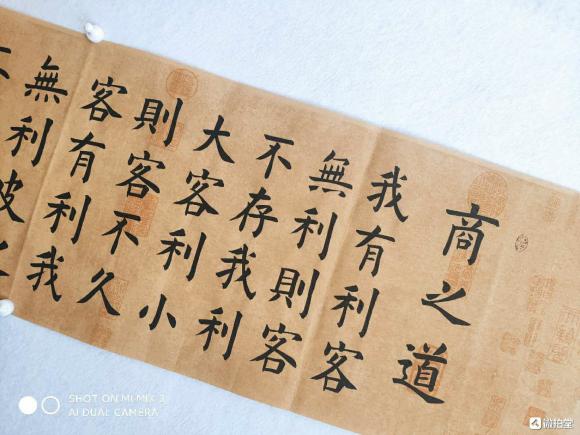 商之道
我有利客
無利則客
不存我利
大客利小
則客不久
客有利我
無利
SHOT ON MI MIX 3
AI DUAL CAMERA
微拍堂